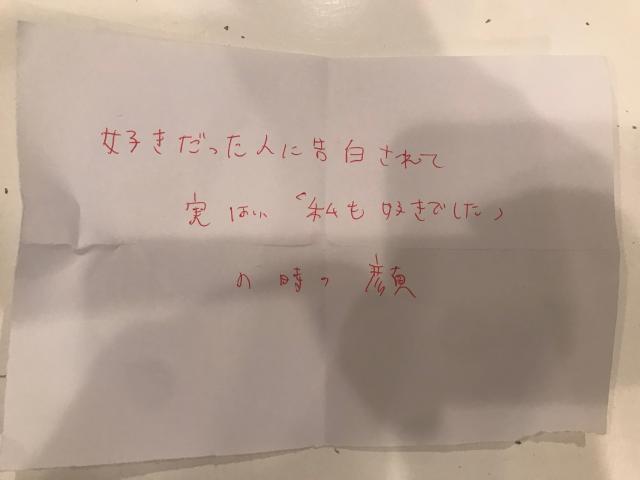 好きだった人に告白されて
実は…「私も好きでした」
の時の顔